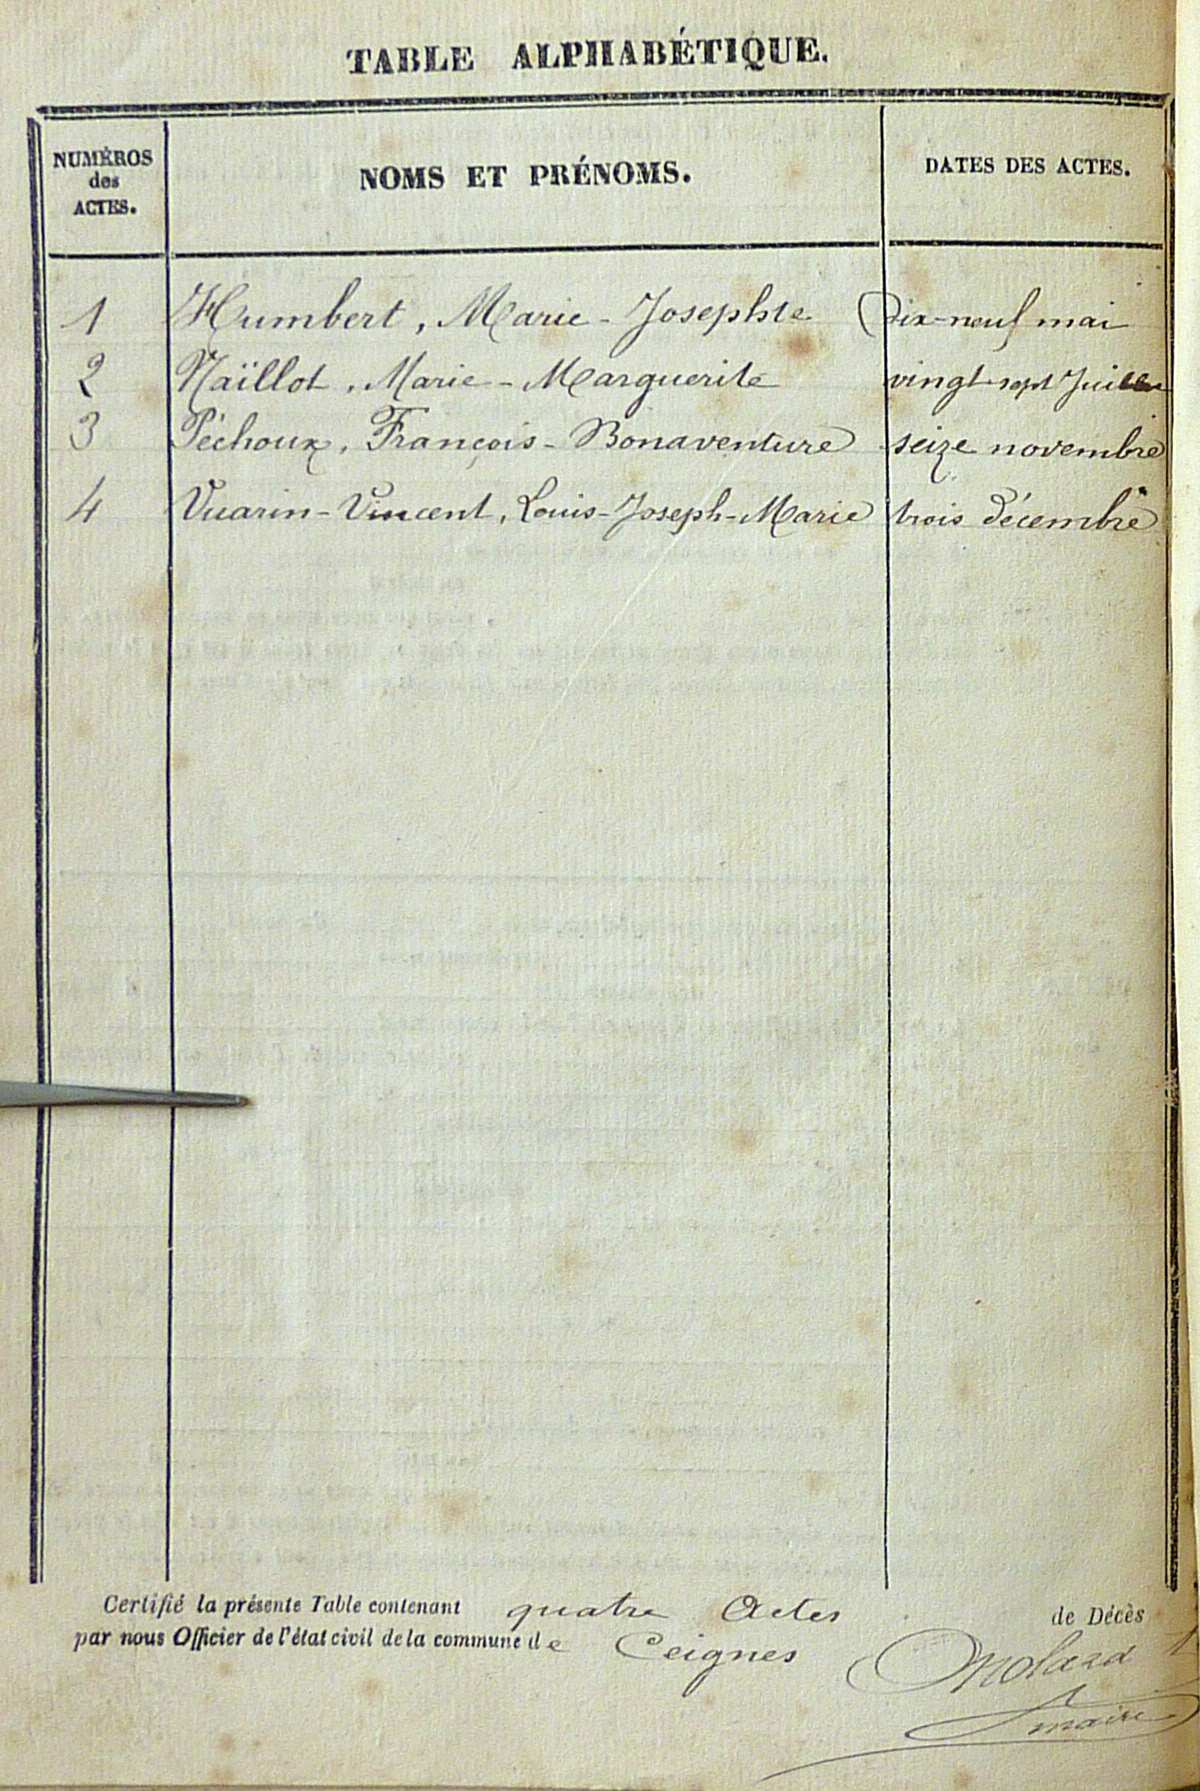 TABLE ALPHABÉTIQUE.
NUMÉROS
des
ACTES.
NOMS ET PRÉNOMS.
DATES DES ACTES.
1 Humbert, Marie-Josephte Dix-neuf mai
2 Naïllot, Marie-Marguerite vingt-sept Juillet
3 Péchoux, François-Bonaventure seize novembre
4 Vuarin-Vincent, Louis-Joseph-Marie trois décembre
Certifié la présente Table contenant quatre Actes de Décès
par nous Officier de l'état civil de la commune de Ceignes
Molard
maire